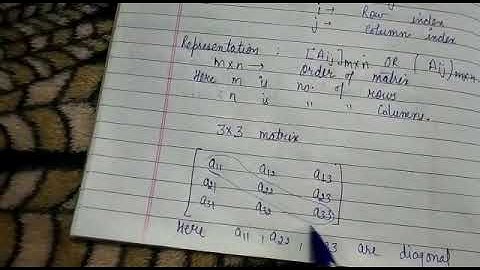 i → Row index
j → Column index
Representation : [Aij]m×n OR (Aij)m×n
m×n → order of matrix
Here m is no. of rows
" n is " " Columns.
3×3 matrix
a11 a12 a13
a21 a22 a23
a31 a32 a33
Here a11, a22, a33 are diagonal